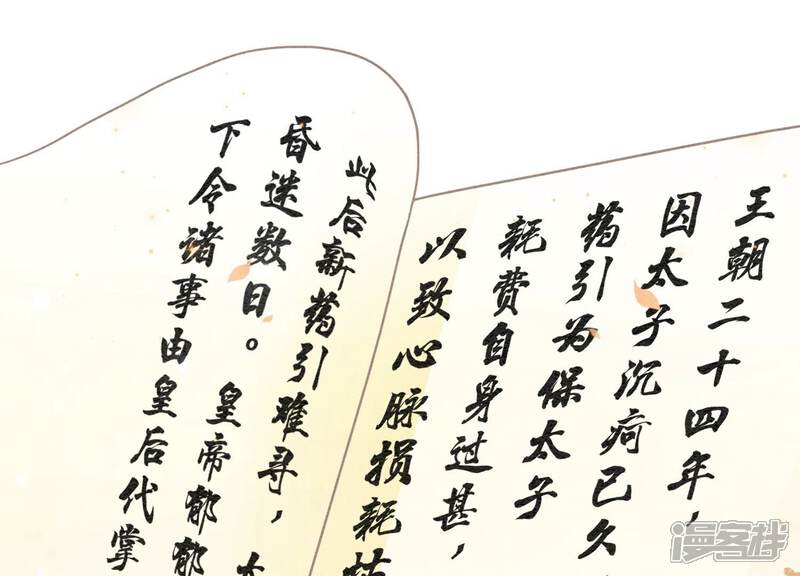 王朝二十四年，
因太子沉疴已久
药引为保太子
耗费自身过甚，
以致心脉损耗
此后新药引难寻，
昏迷数日。皇帝郁郁
下令诸事由皇后代掌
漫客栈